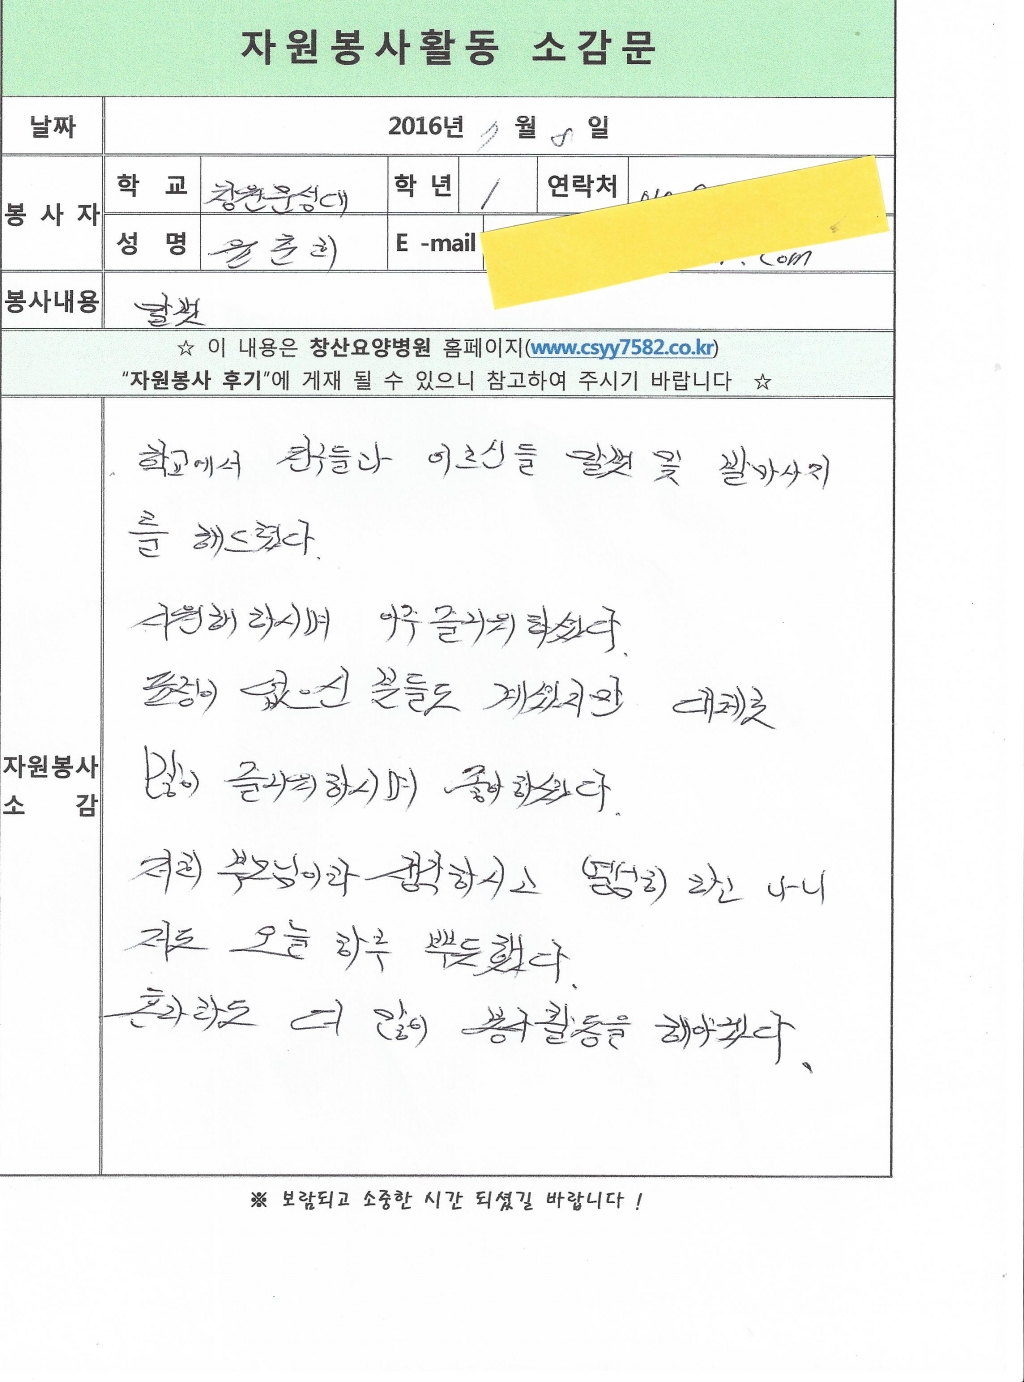 자원봉사활동 소감문
날짜 2016년 7월 8일
봉사자 학 교 창원문성대 학 년 1 연락처
성 명 윤춘희 E -mail .com
봉사내용 발벗
☆ 이 내용은 창산요양병원 홈페이지(www.csyy7582.co.kr)
"자원봉사 후기"에 게재 될 수 있으니 참고하여 주시기 바랍니다 ☆
학교에서 친구들과 어르신들 말벗 및 발마사지
를 해드렸다.
시원해 하시며 아주 즐거워 하셨다.
표정이 없으신 분들도 계셨지만 대체로
많이 즐거워하시며 좋아하셨다.
저희 부모님이라 생각하시고 열심히 하고 나니
저도 오늘 하루 뿌듯했다.
자원봉사
소 감
더 많이 봉사활동을 해야겠다.
※ 보람되고 소중한 시간 되셨길 바랍니다 !